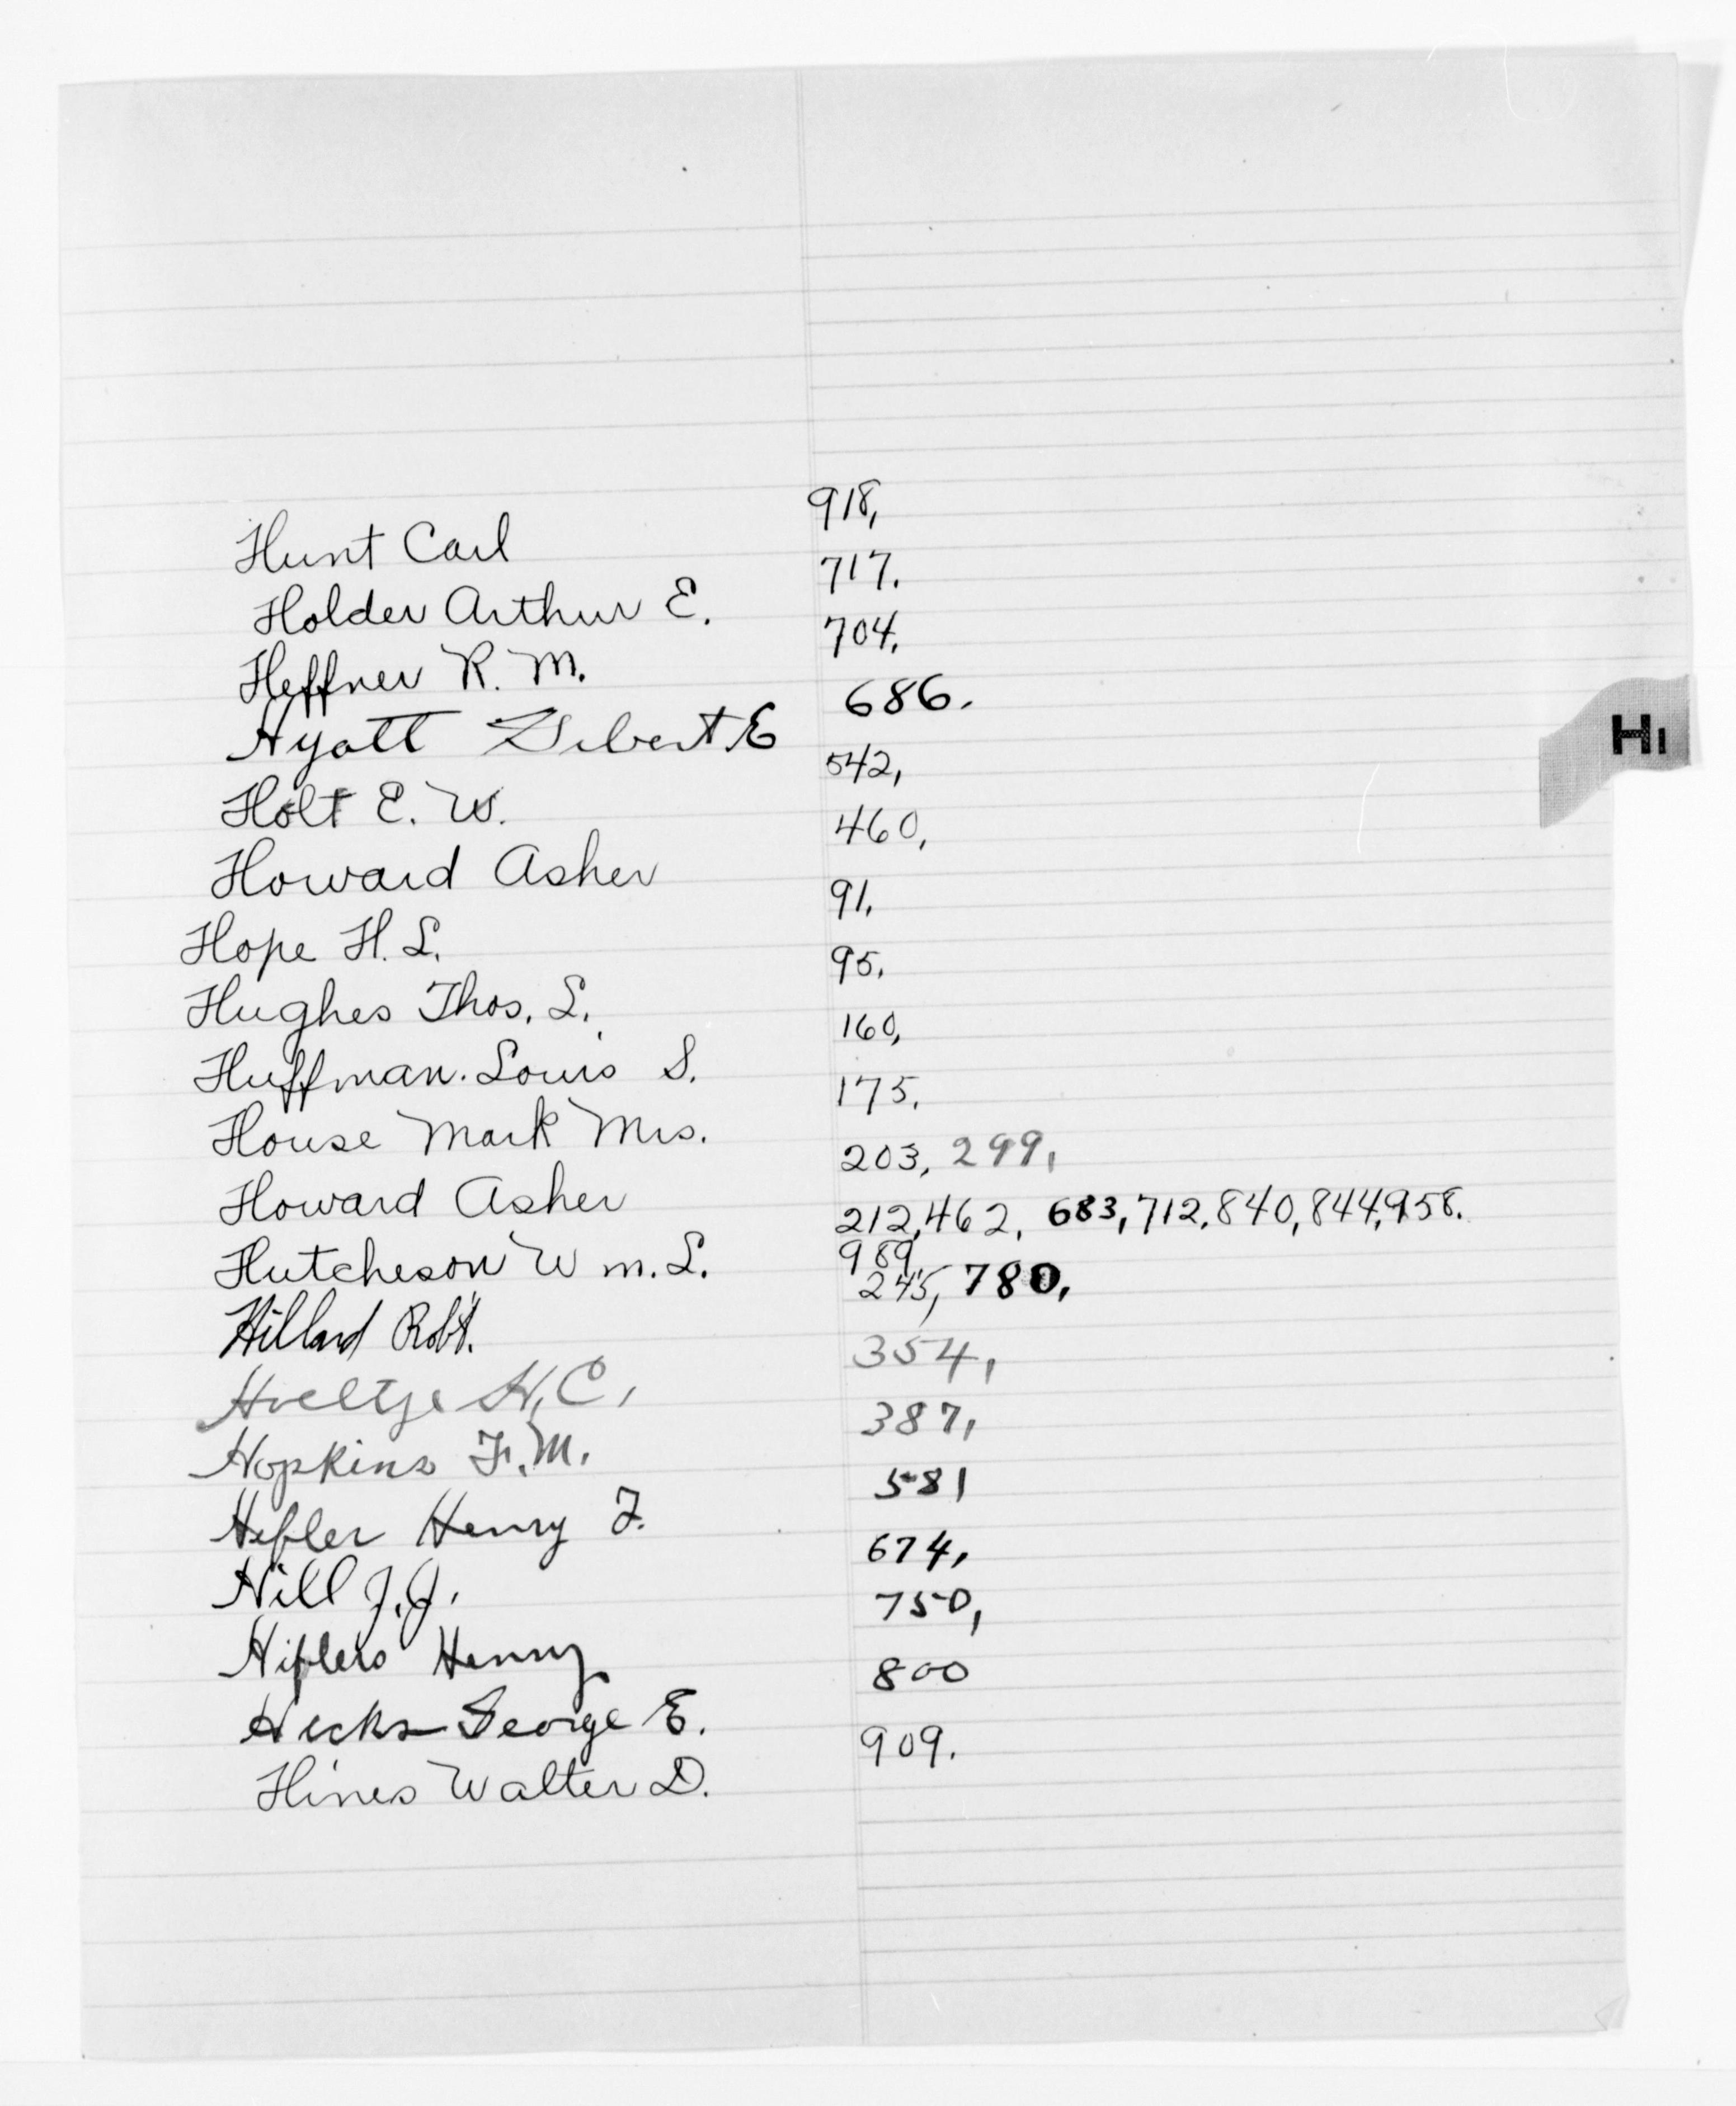 Hunt Carl 918,
Holder Arthur E. 717.
Heffner R. M. 704,
Hyatt Gilbert E 686.
Holt E. W. 542,
Howard Asher 460,
Hope H. L. 91,
Hughes Thos. L. 95,
Huffman. Louis S. 160,
House Mark Mrs. 175,
Howard Asher 203, 299,
Hutcheson Wm. L. 212, 462, 683, 712, 840, 844, 958.
989,
Hillard Robt. 245, 780,
Hoeltje H. C. 354,
Hopkins F. M. 387,
Hefler Henry F. 581
Hill J. J. 674,
Hiflers Henry 750,
Hicks George E. 800
Hines Walter D. 909.
HI